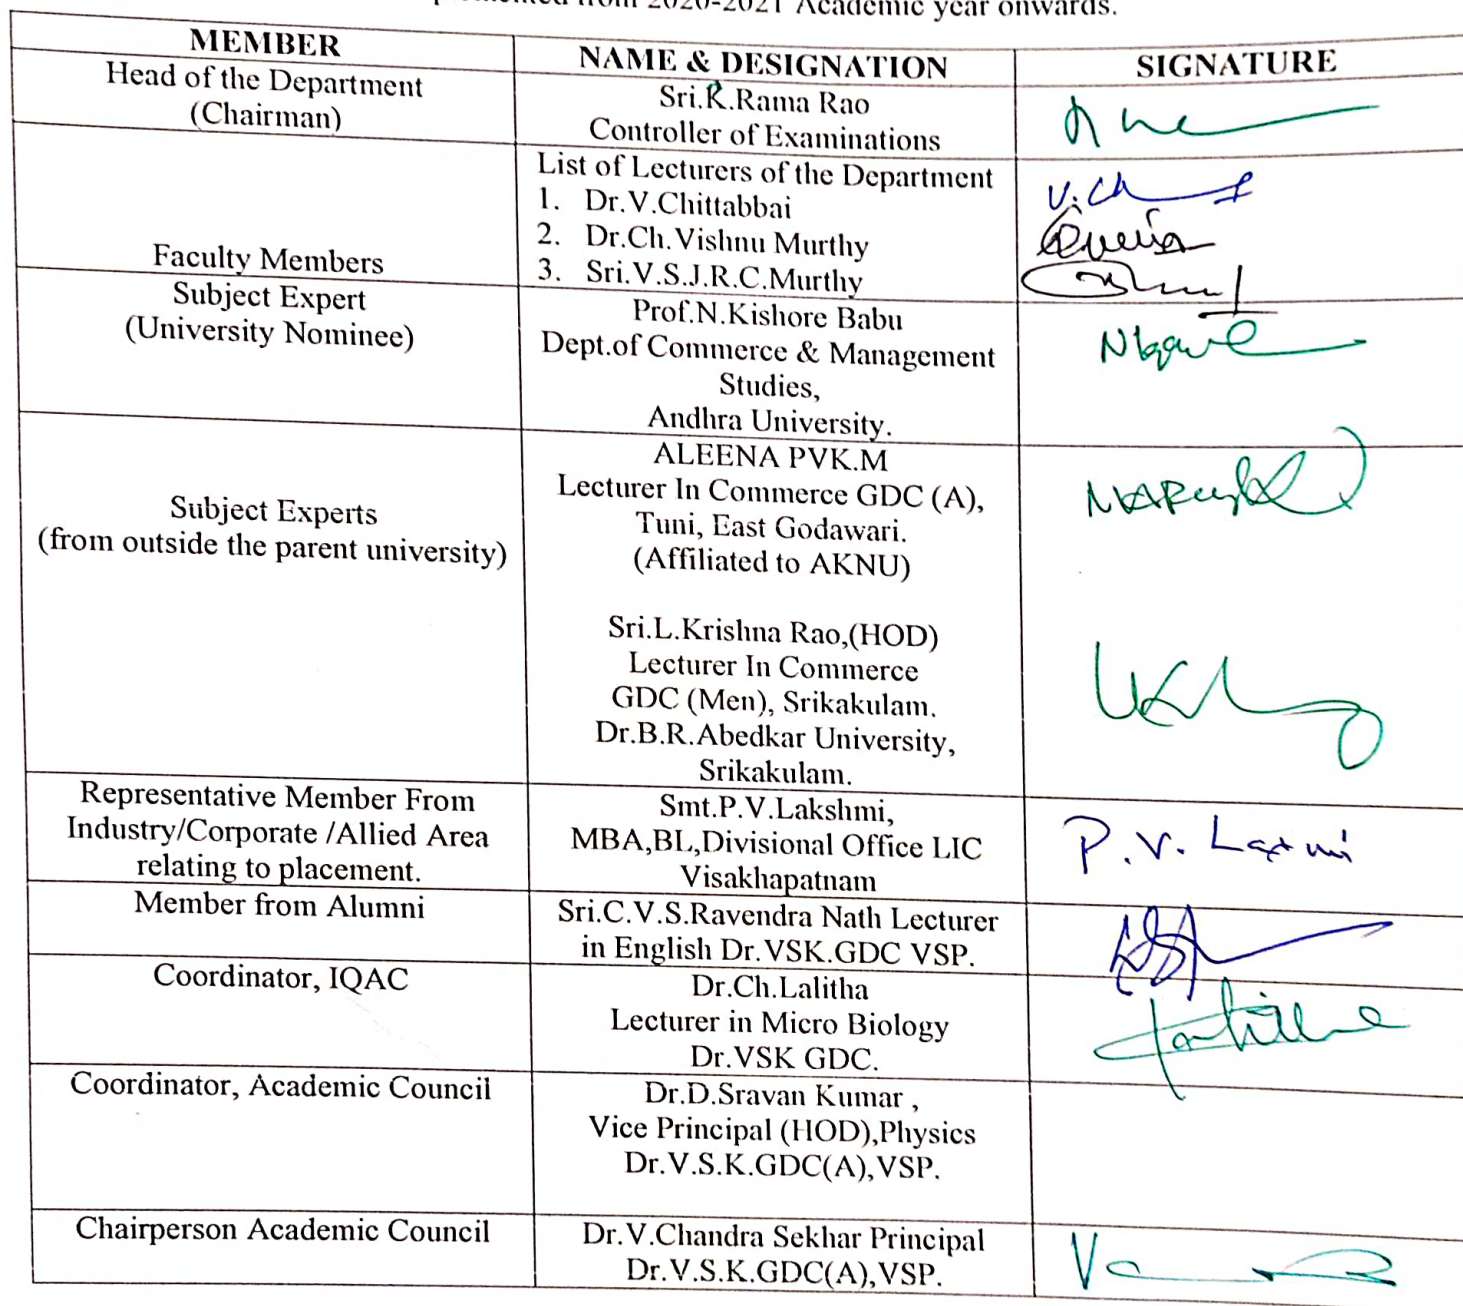 from 2020-2021 Academic year onwards.
MEMBER
NAME & DESIGNATION
SIGNATURE
Head of the Department
(Chairman)
Sri.R.Rama Rao
Controller of Examinations
Faculty Members
List of Lecturers of the Department
1. Dr.V.Chittabbai
2. Dr.Ch.Vishnu Murthy
3. Sri.V.S.J.R.C.Murthy
V.Ch
Subject Expert
(University Nominee)
Prof.N.Kishore Babu
Dept.of Commerce & Management
Studies,
Andhra University.
Subject Experts
(from outside the parent university)
ALEENA PVK.M
Lecturer In Commerce GDC (A),
Tuni, East Godawari.
(Affiliated to AKNU)
Sri.L.Krishna Rao,(HOD)
Lecturer In Commerce
GDC (Men), Srikakulam.
Dr.B.R.Abedkar University,
Srikakulam.
Representative Member From
Industry/Corporate /Allied Area
relating to placement.
Smt.P.V.Lakshmi,
MBA,BL,Divisional Office LIC
Visakhapatnam
P.V. Laxmi
Member from Alumni
Sri.C.V.S.Ravendra Nath Lecturer
in English Dr.VSK.GDC VSP.
Coordinator, IQAC
Dr.Ch.Lalitha
Lecturer in Micro Biology
Dr.VSK GDC.
Coordinator, Academic Council
Dr.D.Sravan Kumar ,
Vice Principal (HOD),Physics
Dr.V.S.K.GDC(A),VSP.
Chairperson Academic Council
Dr.V.Chandra Sekhar Principal
Dr.V.S.K.GDC(A),VSP.